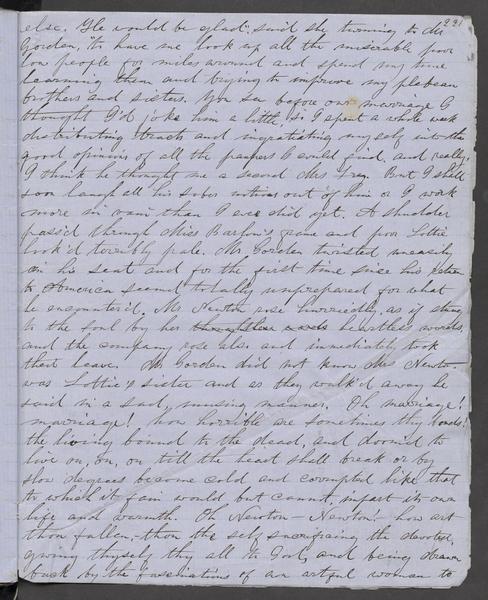 221
else. "He would be glad", said she turning to Mr
Gorden, "to have me look up all the miserable poor
low people for miles around and spend my time
learning them and trying to improve my plebean
brothers and sisters. You see before our marriage I
thought I'd joke him a little, so I spent a whole week
distributing tracts and ingratiating myself into the
good opinions of all the paupers I could find, and really
I think he thought me a second Mrs Fry. But I shall
soon laugh all his sober notions out of him or I work
more in vain than I ever did yet. A shudder
pass'd through Miss Barton's frame and poor Lottie
look'd terribly pale. Mr Gorden twisted uneasily
in his seat and for the first time since his return
to America seemed totally unprepared for what
he encounter'd. Mr Newton rose hurriedly, as if stung
to the soul by her thoughtless words heartless words
and the company rose also and immediately took
their leave. Mr Gorden did not know Mrs Newton
was Lottie's sister and as they walk'd away he
said in a sad, musing manner. Oh marriage!
marriage! how horrible are sometimes thy bonds!
the living bound to the dead, and doom'd to
live on, on, on till the heart shall break or by
slow degrees become cold and corrupted like that
to which it fain would but cannot, impart its own
life and warmth. Oh Newton - Newton - how art
thou fallen - thou the self sacrificing the devoted,
giving thyself thy all to God, and being drawn
back by the fascinations of an artful woman to